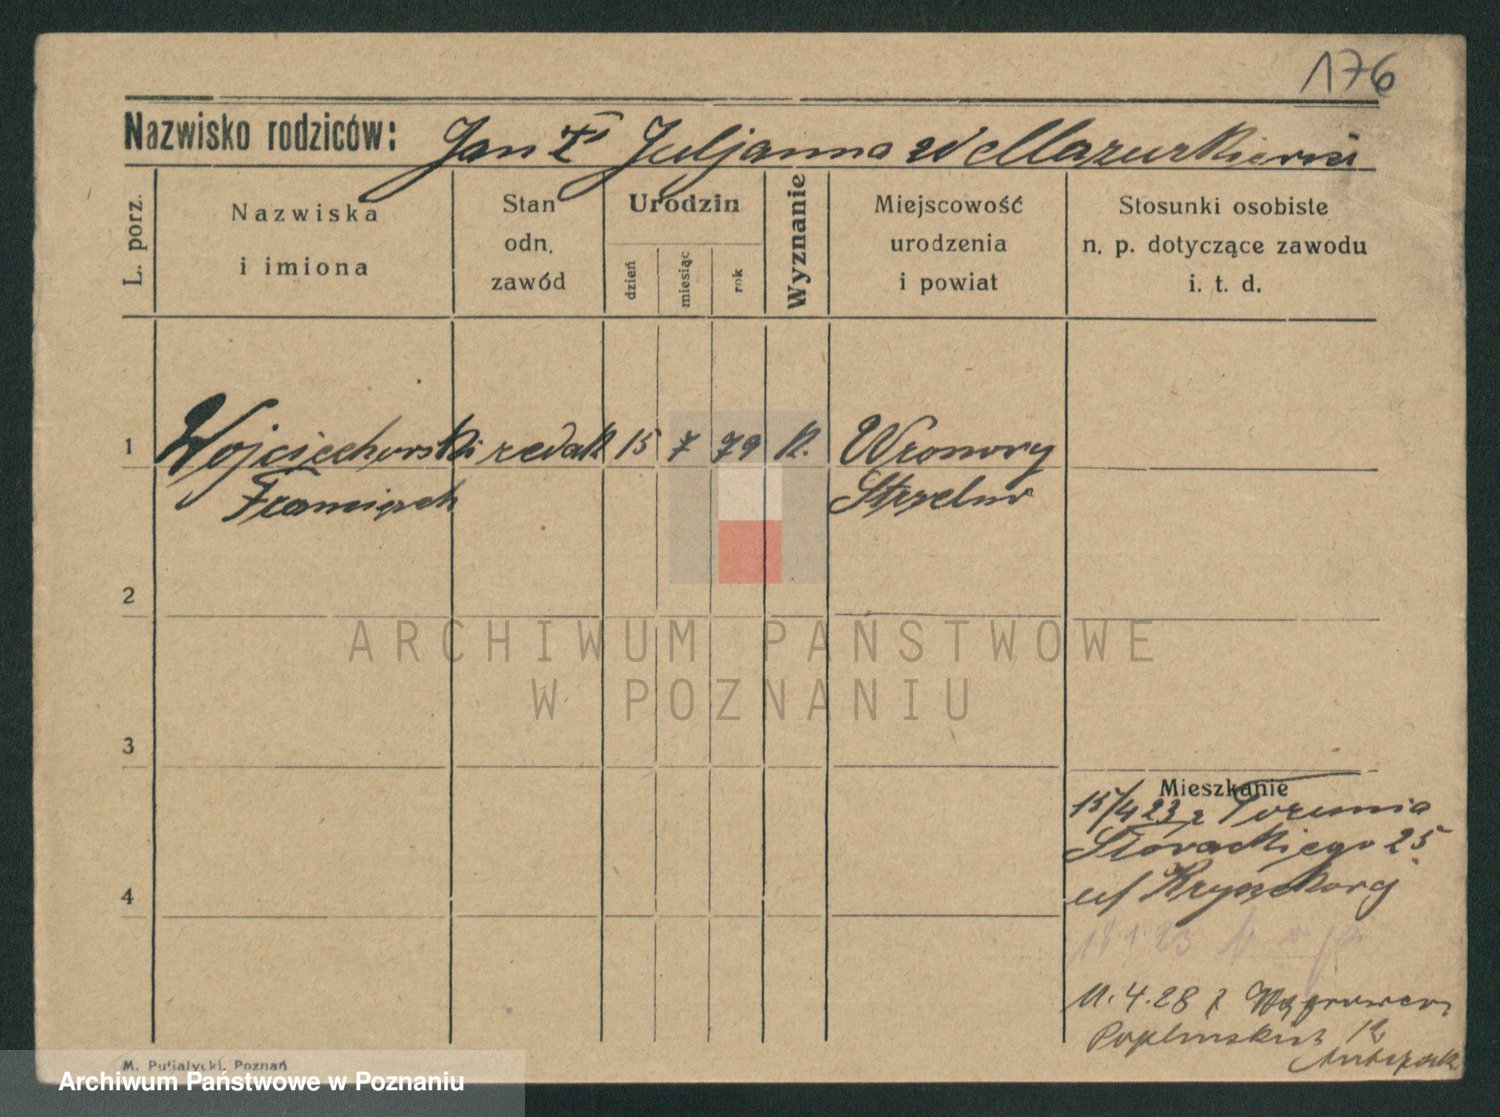 176
Nazwisko rodziców: Jan Juljanna Mazurkiewicz
L. porz.
Nazwiska
i imiona
Stan
odn.
zawód
Urodzin
dzień
miesiąc
rok
Wyznanie
Miejscowość
urodzenia
i powiat
Stosunki osobiste
n. p. dotyczące zawodu
i. t. d.
1 Wojciechowski redak 15 7 79 k. Wronowy
Franciszek Strzelno
2
ARCHIWUM PAŃSTWOWE
W POZNANIU
3
Mieszkanie
15/4 23 z Torunia
Słowackiego 25
4
11.4.28 z Wągrowca
M. Putiatycki, Poznań
Archiwum Państwowe w Poznaniu